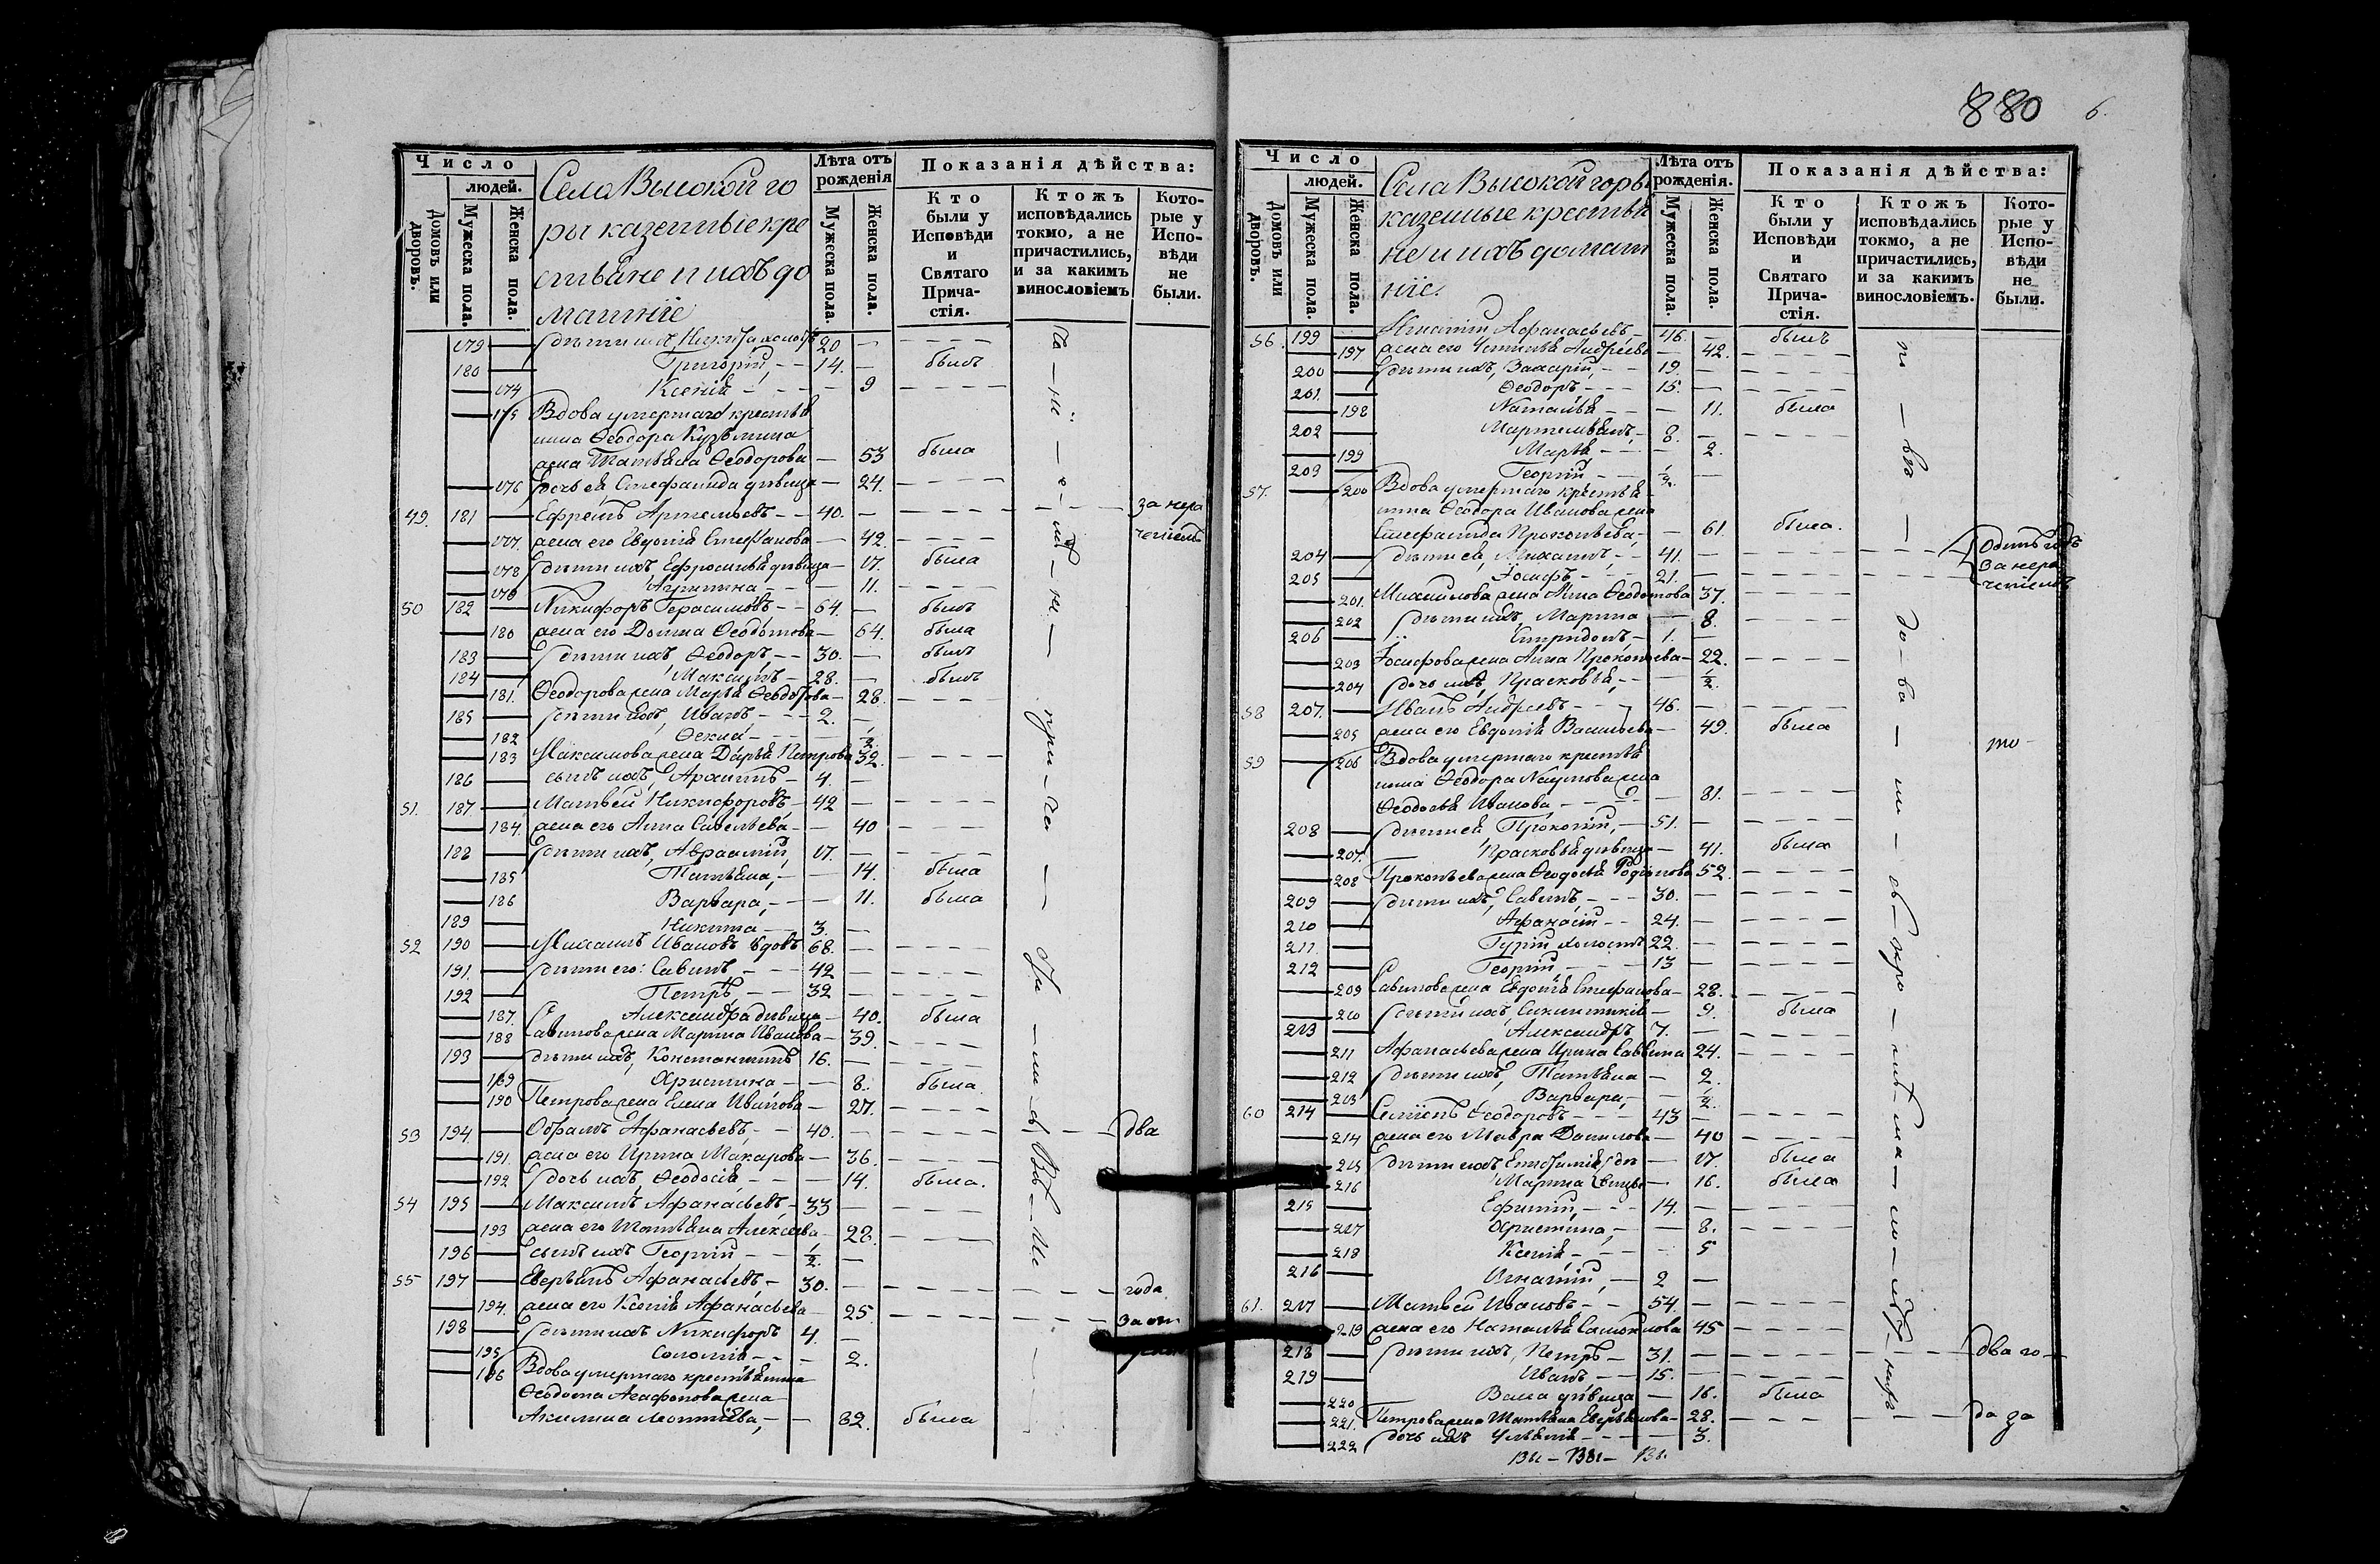 880 6.
Число
людей.
Домовъ или дворовъ.
Мужеска пола.
Женска пола.
Села Высокой го
ры казенные кре
стьяне и ихъ до
машніе
Лѣта отъ рожденія
Мужеска пола.
Женска пола.
Показанія дѣйства:
Кто были у Исповѣди и Святаго Причастія.
Ктожъ исповѣдались токмо, а не причастились, и за какимъ винословіемъ
Которые у Исповѣди не были.
179 дѣти ихъ, Никита холостъ 20
180 Григорій 14. былъ
174 Ксенія 9
175 Вдова умершаго крестья
нина Ѳеодора Кузьмина
жена Татьяна Ѳеодорова 53 была
176 дочь ея Стефанида дѣвица 24.
49. 181 Ефремъ Артемьевъ 40. за нера
177. жена его Евдокія Стефанова 42. ченіемъ
178 дѣти ихъ Ефросинья дѣвица 17. была
179 Агрипина 11.
50 182 Никифоръ Герасимовъ 64. былъ
180 жена его Домна Ѳеодотова 64. была
183 дѣти ихъ Ѳеодоръ 30. былъ
184 Максимъ 28. былъ
181. Ѳеодорова жена Марья Ѳеодотова 28.
185 дѣти ихъ, Иванъ, 2.
182 Ѳекла 1/2
183 Максимова жена Дарья Петрова 32.
186 сынъ ихъ, Архипъ 4.
51. 187 Матвей Никифоровъ 42
184. жена его Анна Савельева 40
188 дѣти ихъ, Авраамій 17.
185 Татьяна, 14. была
186 Варвара, 11. была
189 Никита 3.
52 190 Михаилъ Ивановъ вдовъ 68.
191. дѣти его: Савинъ, 42
192 Петръ, 32
187. Александра дѣвица 40. была
188 Савинова жена Марина Иванова 39.
193 дѣти ихъ, Константинъ 16.
189 Христина 8. была
190 Петрова жена Елена Иванова 27.
53 194 Абрамъ Афанасьевъ 40. два
191. жена его Ирина Макарова 36.
192 дочь ихъ, Ѳеодосія 14. была.
54 195 Максимъ Афанасьевъ 33
193 жена его Татьяна Алексѣева 28.
196 сынъ ихъ Георгій 1/2.
55 197 Аверьянъ Афанасьевъ 30. года
194. жена его Ксенія Афанасьева 25. за от
198 дѣти ихъ Никифоръ 4.
195 Соломія 2.
196 Вдова умершаго крестьянина
Ѳедота Агафонова жена
Акилина Леонтіева, 82. была
Число
людей.
Домовъ или дворовъ.
Мужеска пола.
Женска пола.
Села Высокой горы
казенные крестья
не и ихъ домаш
ніе.
Лѣта отъ рожденія.
Мужеска пола.
Женска пола.
Показанія дѣйства:
Кто были у Исповѣди и Святаго Причастія.
Ктожъ исповѣдались токмо, а не причастились, и за какимъ винословіемъ.
Которые у Исповѣди не были.
56. 199 Игнатій Афанасьевъ 46. былъ
197 жена его Устинья Андреева 42.
200 дѣти ихъ, Захарій, 19.
201. Ѳеодоръ 15.
198 Наталья 11. была
202 Мартемьянъ, 8.
199 Марья 2.
203 Георгій 1/2.
57. 200 Вдова умершаго крестья
нина Ѳеодора Иванова жена
Стефанида Прокопьева, 61. была.
204 дѣти ея, Михаилъ, 41. Одинъ годъ
205 Іосифъ 21. за нера
201. Михайлова жена Анна Ѳеодотова 37. ченіемъ
202 дѣти ихъ, Марина 8.
206 Спиридонъ, 1.
203 Іосифова жена Анна Прокопьева 22.
204 дочь ихъ, Прасковья, 1/2.
58 207. Иванъ Андреевъ 46.
205 жена его Евдокія Васильева 49. была
то
59 206 Вдова умершаго крестья
нина Ѳеодора Наумова жена
Ѳеодосья Иванова 81.
208 дѣти ея, Прокопій, 51.
207. Прасковья дѣвица 41. была
208 Прокопьева жена Ѳеодосья Родіонова 52.
209 дѣти ихъ, Савинъ, 30.
210 Афанасій 24.
211. Гурій холостъ 22.
212 Георгій, 13
209 Савинова жена Евдокія Стефанова 28.
210 дѣти ихъ, 9. была
213 Александръ 7.
211 Афанасьева жена Ирина Саввина 24.
212 дѣти ихъ, Татьяна 2.
213 Варвара, 1/2.
60 214 Семенъ Ѳеодоровъ 43
214 жена его Мавра Данилова 40
215 дѣти ихъ Епистимія дѣ 17. была
216 Марина вицы 16. была
215 Ефимій, 14.
217 Христина, 8.
218 Ксенія, 5
216 Игнатій, 2
61. 217 Матвей Ивановъ 54.
219 жена его Наталья Самойлова 45
218 дѣти ихъ, Петръ 31. два го
219 Иванъ 15.
220 Васса дѣвица 16. была
221. Петрова жена Татьяна Аверьянова 28. да за
222 дочь ихъ Ульянія 3.